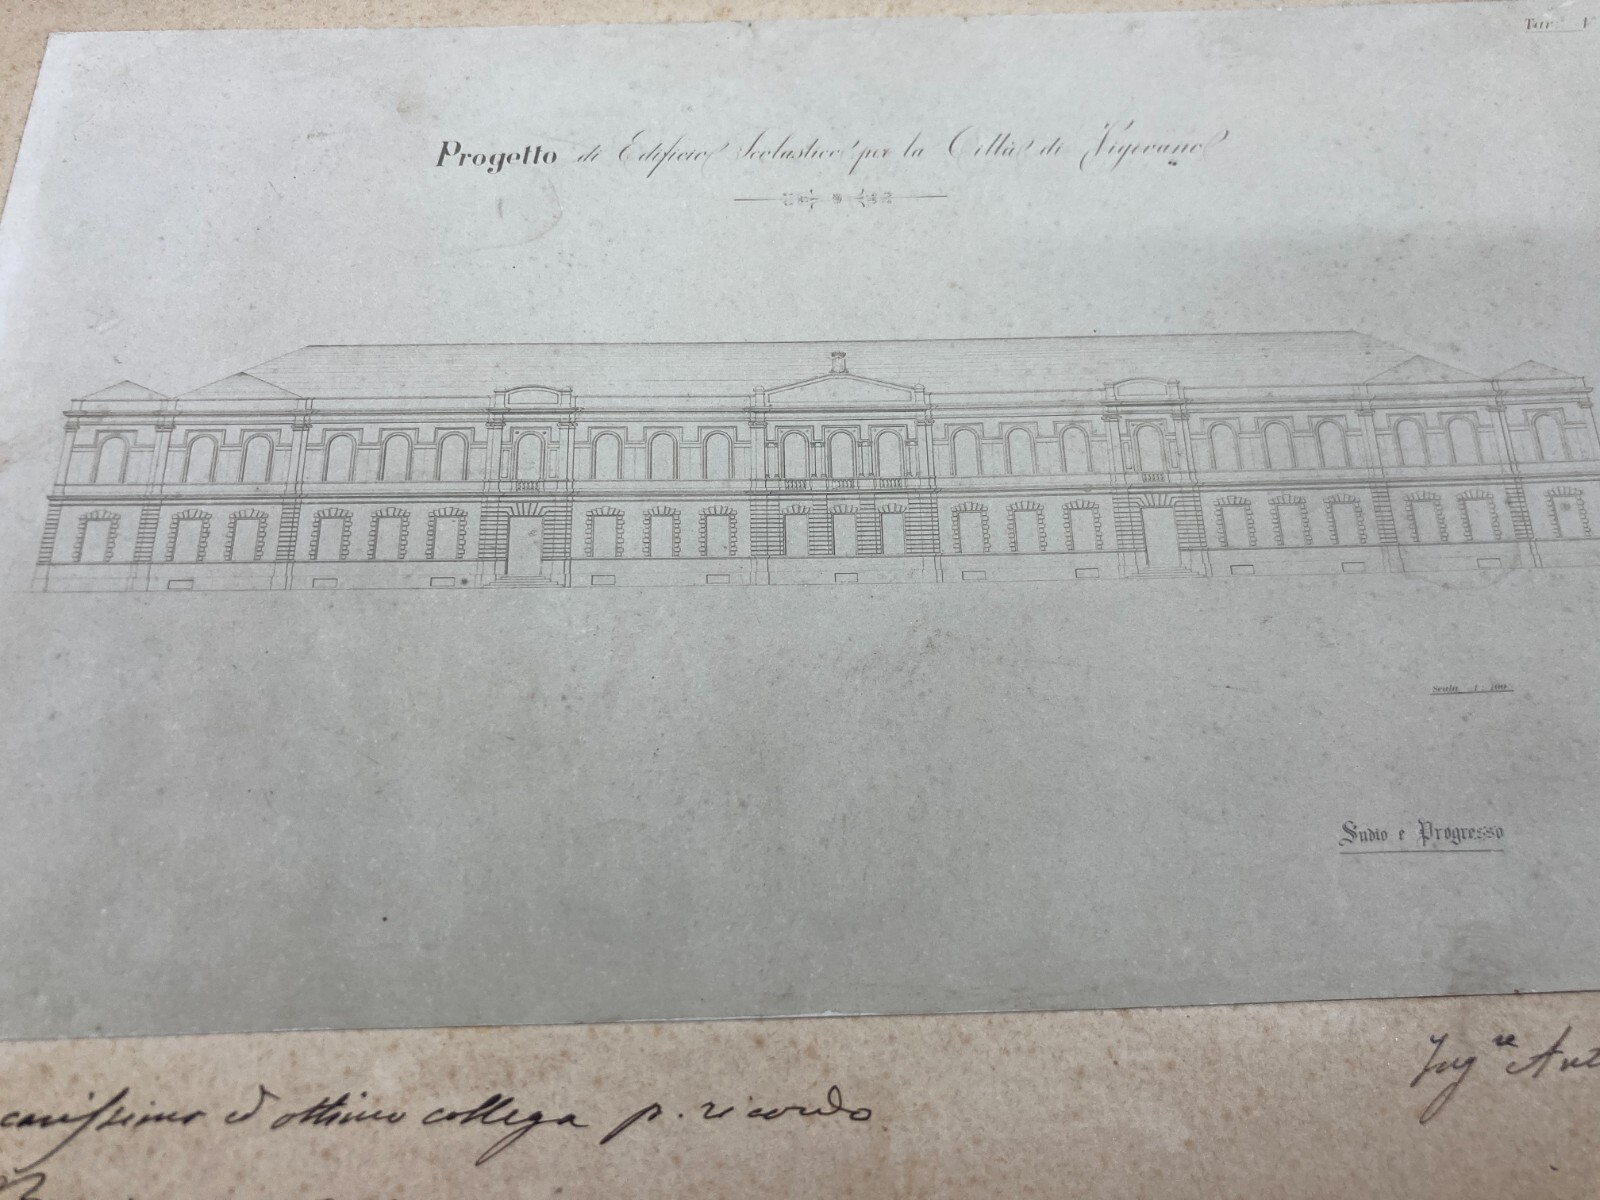 Tav.ª V
Progetto di Edificio Scolastico per la Città di Vigevano
Scala 1:100
Sudio e Progresso
Ing.re Ant
carissimo ed ottimo collega p. ricordo